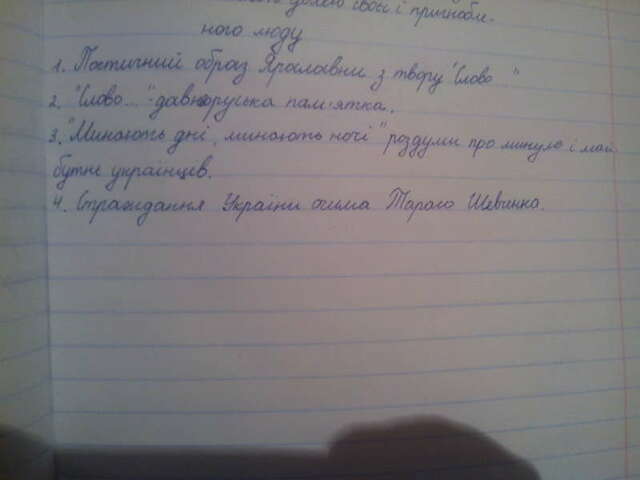 долею своєї і пригнобле-
ного люду
1. Поетичний образ Ярославни з твору "Слово..."
2. "Слово..." - давньоруська пам'ятка.
3. "Минають дні, минають ночі" роздуми про минуле і май
бутнє українцев.
4. Страждання України очима Тараса Шевченка.